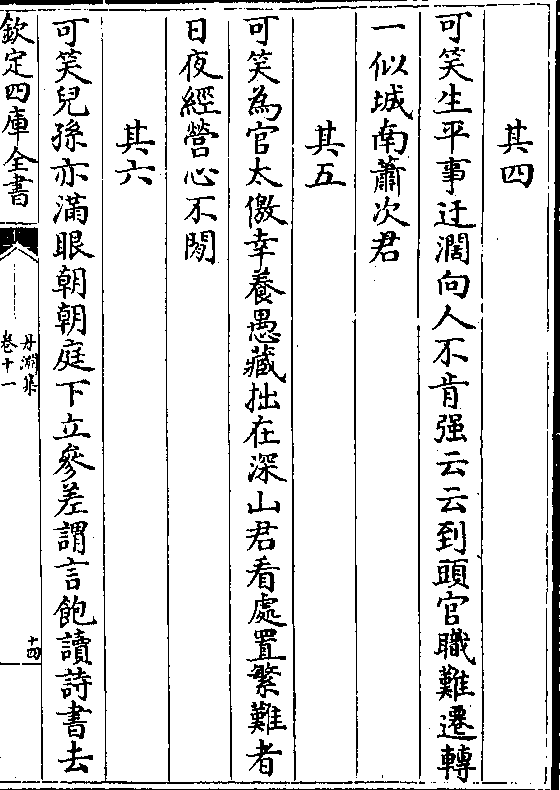 其四
可笑生平事迂濶向人不肯强云云到頭官職難遷轉
一似城南蕭次君
其五
可笑為官太傲幸養愚藏拙在深山君看處置繁難者
日夜經營心不閒
其六
可笑兒孫亦滿眼朝朝庭下立參差謂言飽讀詩書去
欽定四庫全書
丹淵集
卷十一
十四